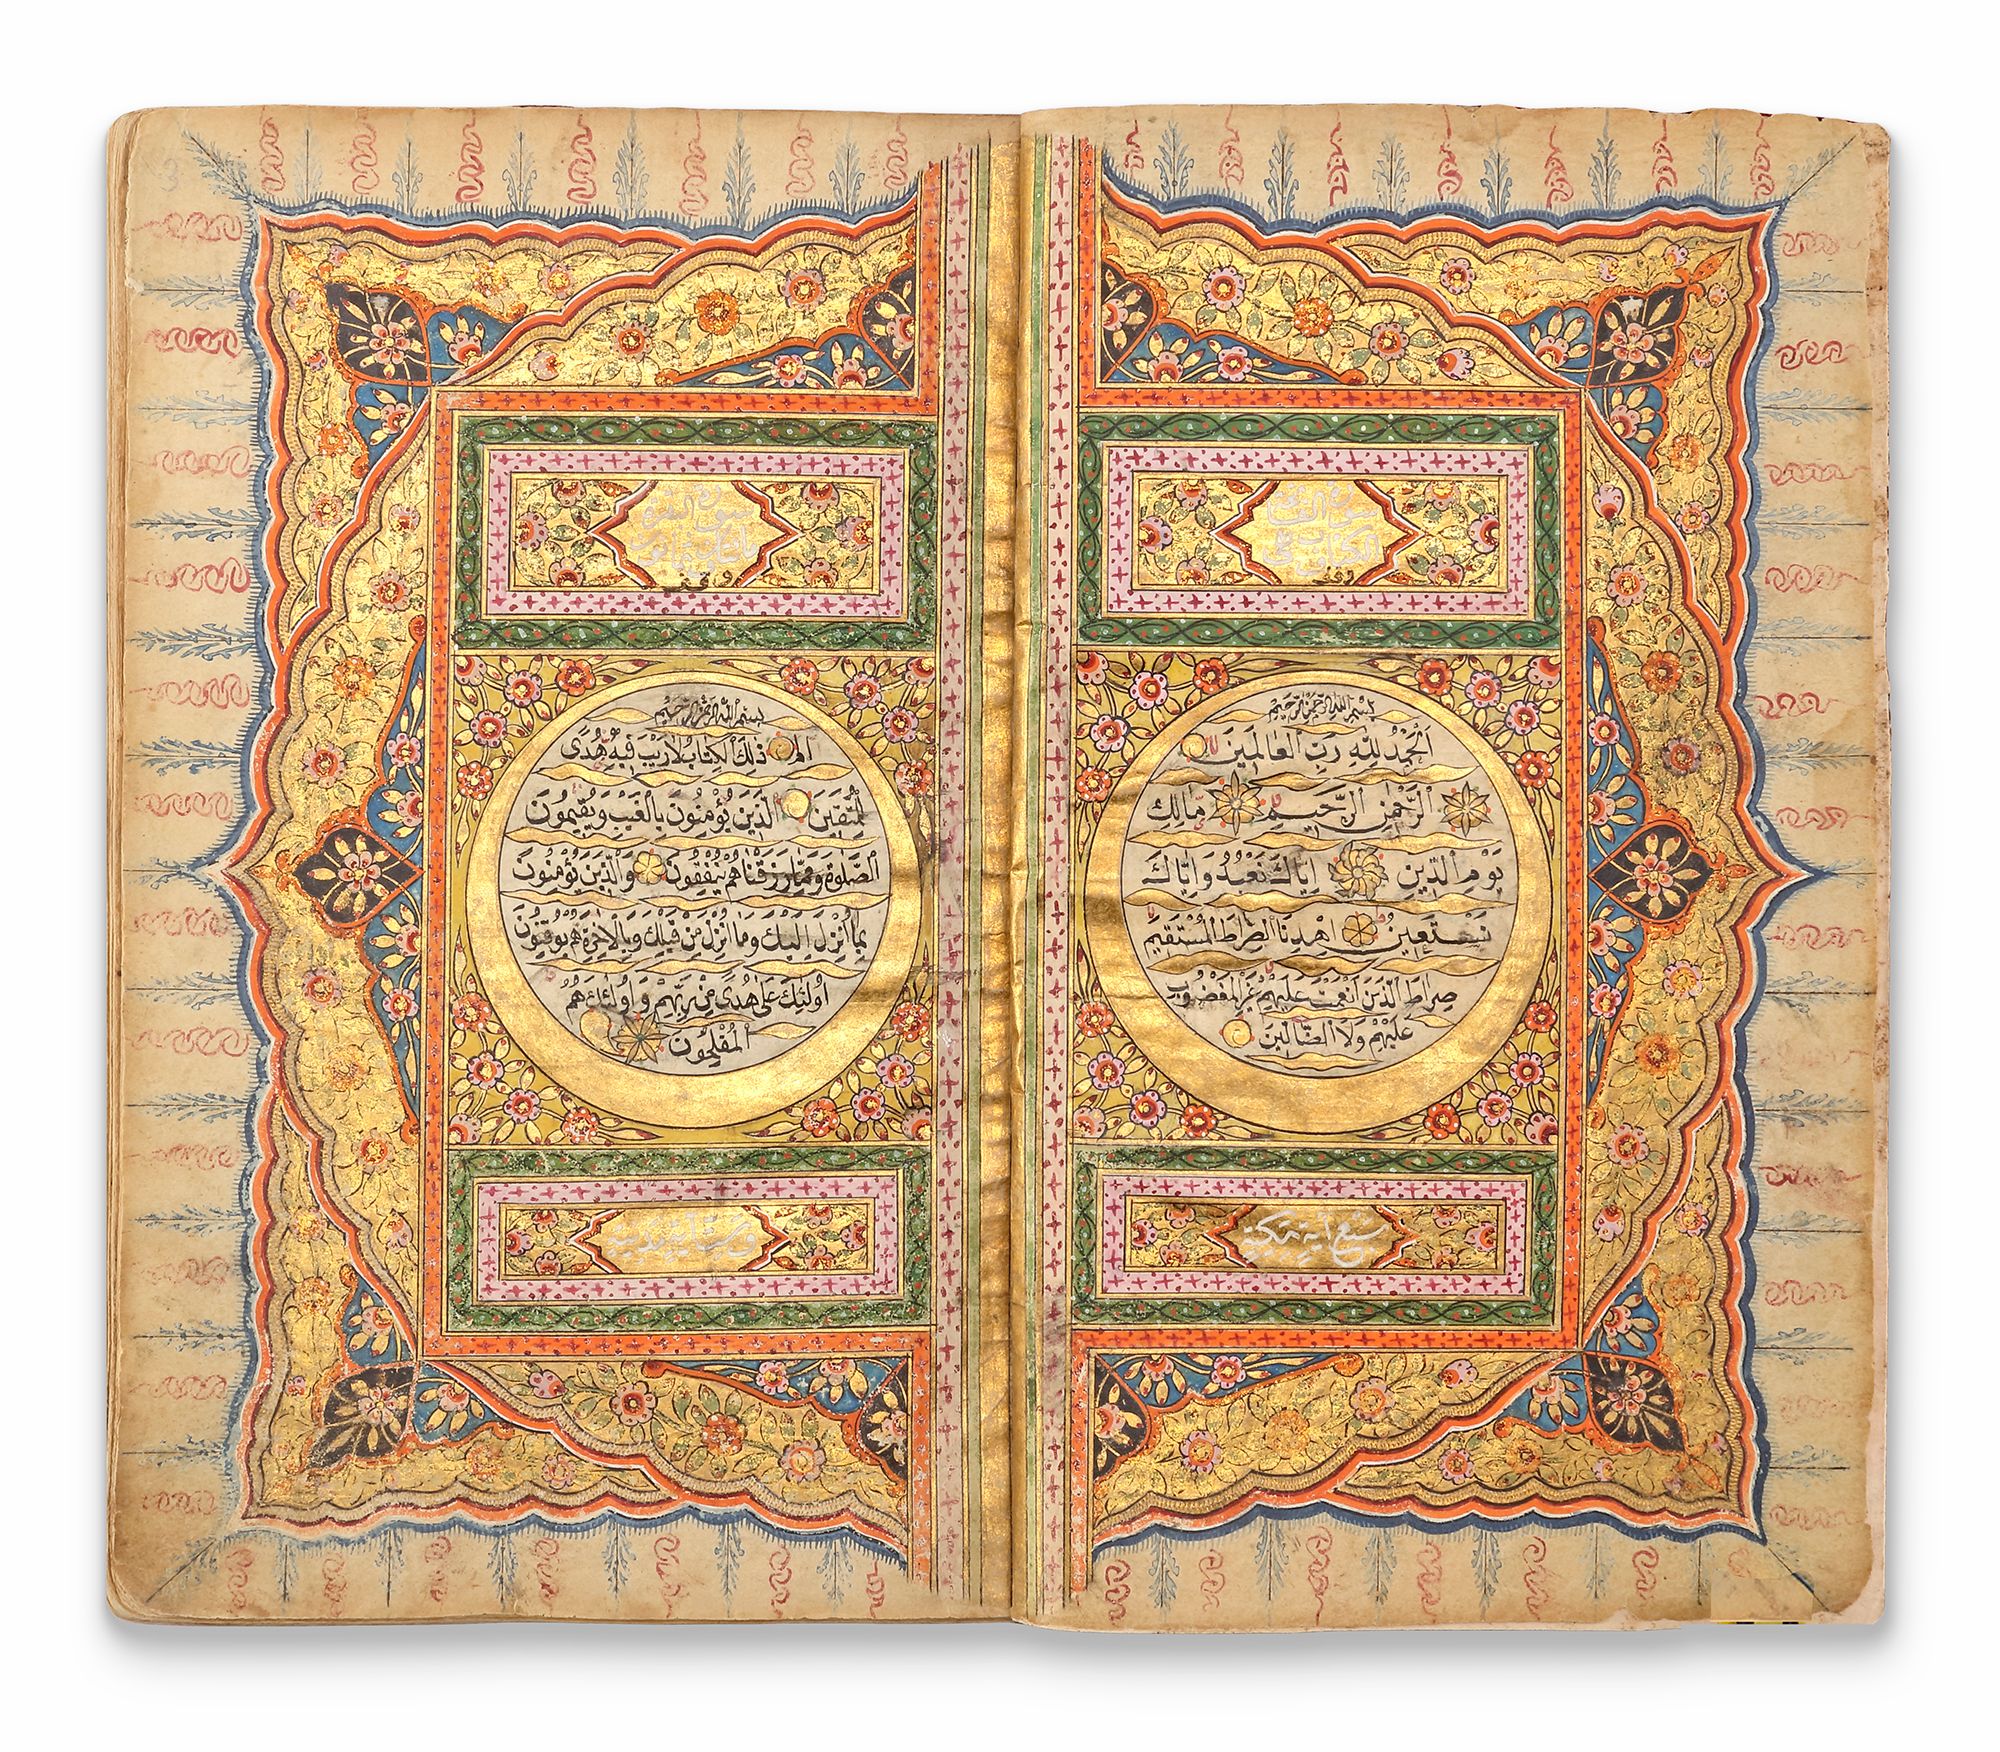 سورة الفاتحة
الكتاب
وقف
بسم الله الرحمن الرحيم
الْحَمْدُ لِلّٰهِ رَبِّ الْعَالَمِينَ
الرَّحْمٰنِ الرَّحِيمِ مَالِكِ
يَوْمِ الدِّينِ اِيَّاكَ نَعْبُدُ وَاِيَّاكَ
نَسْتَعِينُ اِهْدِنَا الصِّرَاطَ الْمُسْتَقِيمَ
صِرَاطَ الَّذِينَ اَنْعَمْتَ عَلَيْهِمْ غَيْرِ الْمَغْضُوبِ
عَلَيْهِمْ وَلَا الضَّالِّينَ
سبع آية مكية
سورة البقرة
وقف
بسم الله الرحمن الرحيم
الم ذٰلِكَ الْكِتَابُ لَا رَيْبَ فِيهِ هُدًى
لِلْمُتَّقِينَ الَّذِينَ يُؤْمِنُونَ بِالْغَيْبِ وَيُقِيمُونَ
الصَّلٰوةَ وَمِمَّا رَزَقْنَاهُمْ يُنْفِقُونَ وَالَّذِينَ يُؤْمِنُونَ
بِمَا اُنْزِلَ اِلَيْكَ وَمَا اُنْزِلَ مِنْ قَبْلِكَ وَبِالْاٰخِرَةِ هُمْ يُوقِنُونَ
اُولٰئِكَ عَلٰى هُدًى مِنْ رَبِّهِمْ وَاُولٰئِكَ هُمُ
الْمُفْلِحُونَ
وست آية مدنية